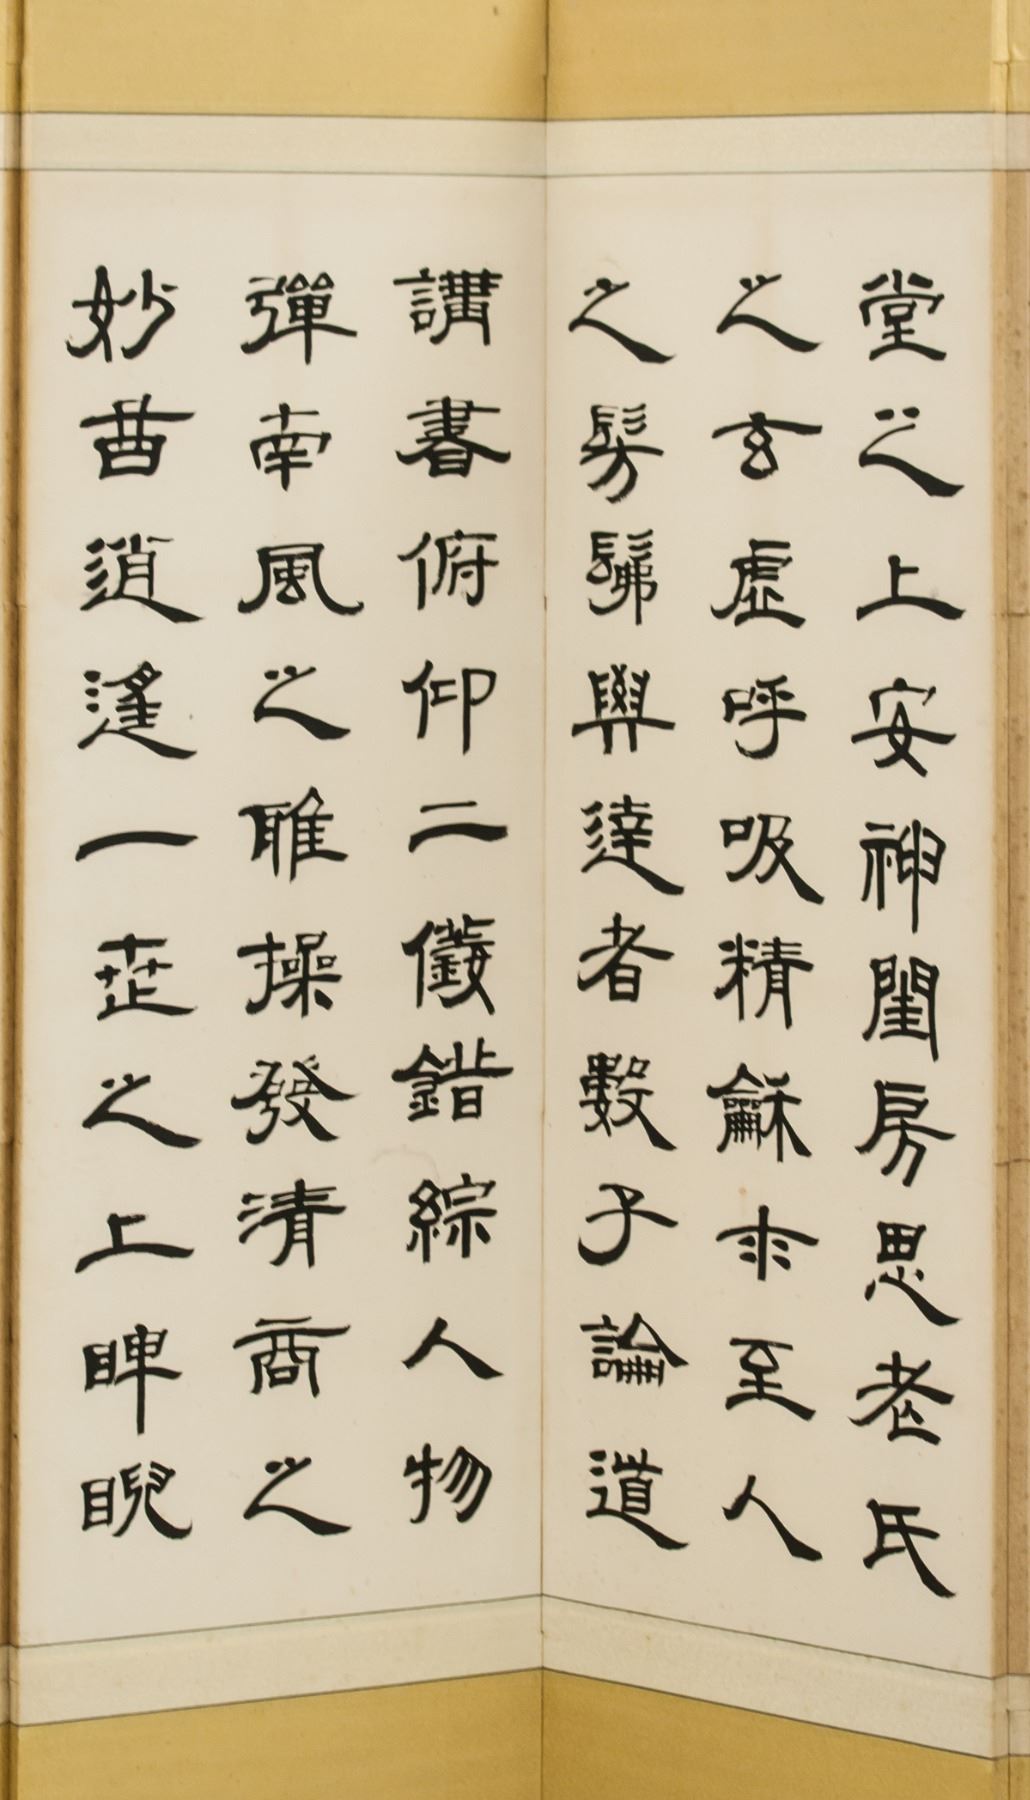 堂之上安神閨房思老氏
之玄虛呼吸精龢求至人
之髣髴與達者數子論道
講書俯仰二儀錯綜人物
彈南風之雅操發清商之
妙曲逍遙一世之上睥睨